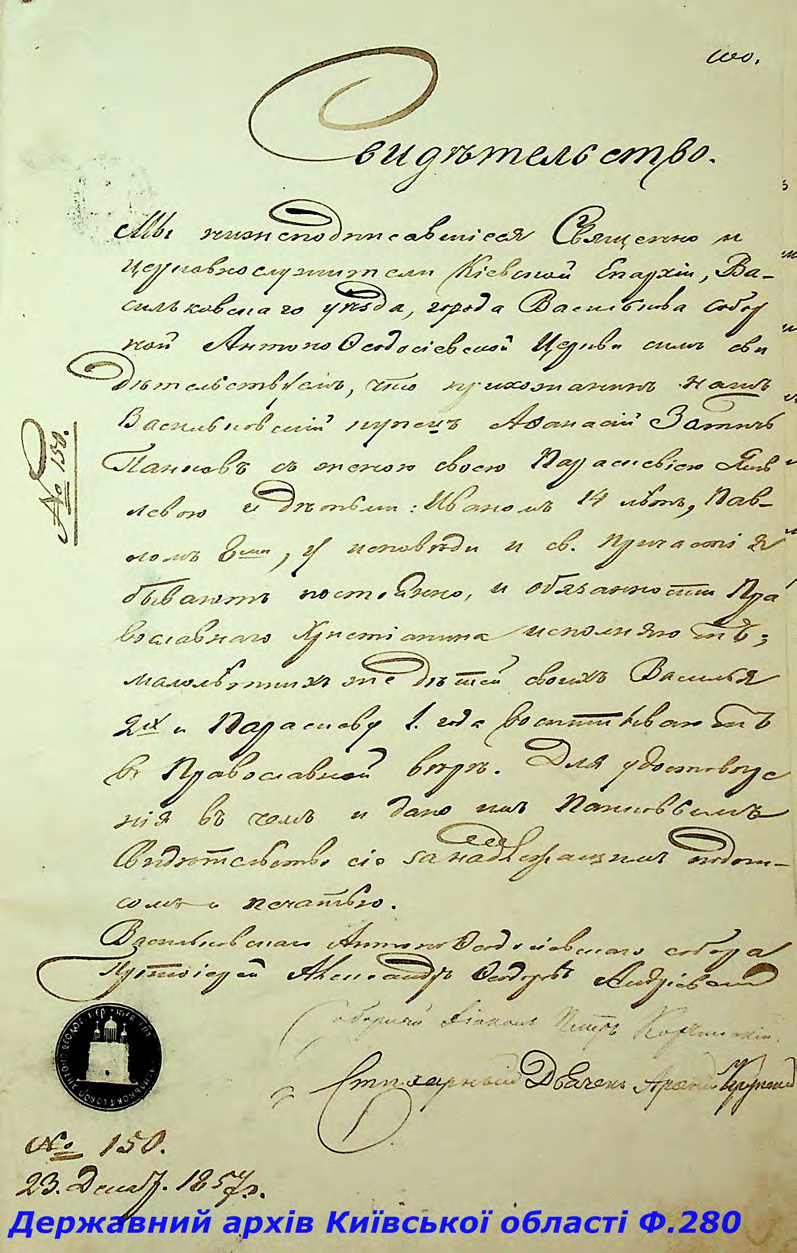 Свидѣтельство.
Мы нижеподписавшіеся Священно и
церковнослужители Кіевской Епархіи, Ва-
сильковскаго уѣзда, города Василькова собор
ной Антоно Ѳеодосіевской Церкви симъ сви
дѣтельствуемъ, что прихожанинъ нашъ
Васильковскій купецъ Аѳанасій
съ женою своею Параскевіею Яков
левою и дѣтьми: Иваномъ 14 лѣтъ, Пав-
ломъ 8ми, у исповѣди и св. Причастія
бываютъ постоянно, и обязанности Пра
вославнаго Христіанина исполняютъ;
малолѣтнихъ же дѣтей своихъ Василія
2хъ и Параскеву 1. года воспитываютъ
въ Православной вѣрѣ. Для удостовѣре
нія въ чемъ и дано имъ
Свидѣтельство сіе за надлежащимъ подпи-
сомъ и печатью.
Васильковскаго Антоно Ѳеодосіевскаго собора
Протоіерей Александръ Ѳедоровъ Андріевскій
Соборный Діаконъ Петръ
Стихарный Дьячекъ
№ 150.
№ 150.
23. Декаб. 1857 г.
Державний архів Київської області Ф.280